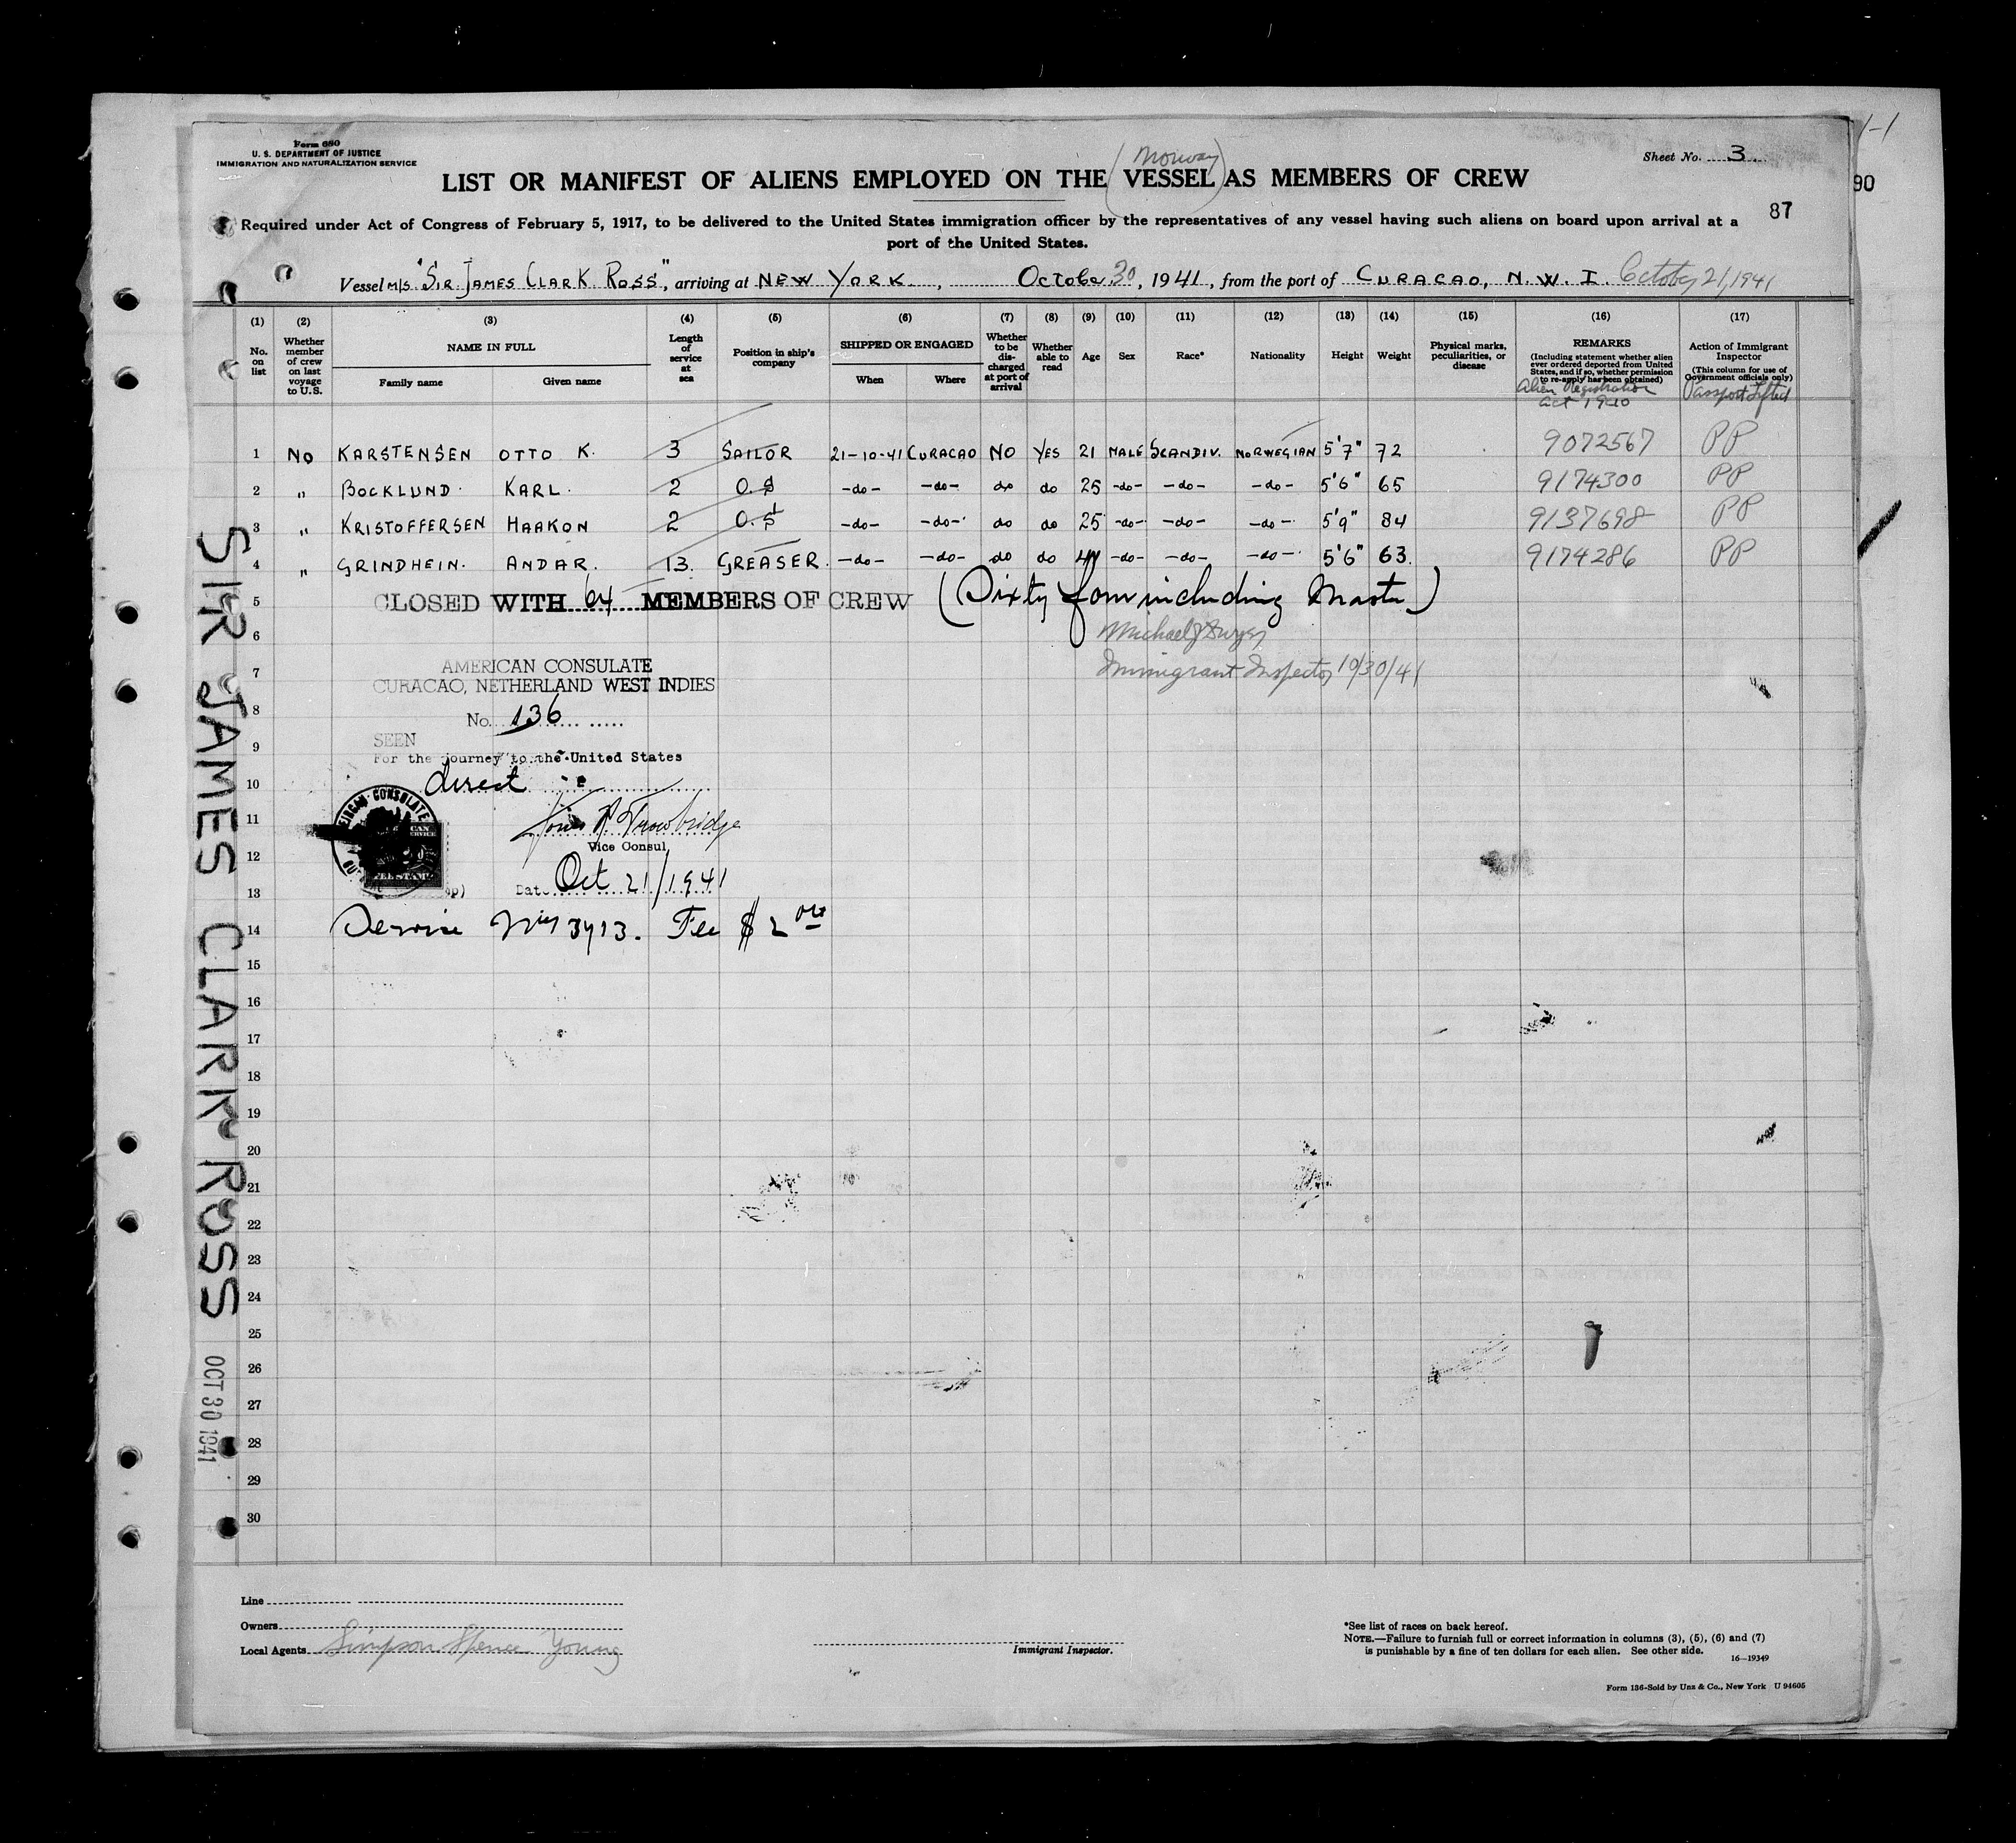 Form 680
U. S. DEPARTMENT OF JUSTICE
IMMIGRATION AND NATURALIZATION SERVICE
Sheet No. 3
(Norway)
LIST OR MANIFEST OF ALIENS EMPLOYED ON THE VESSEL AS MEMBERS OF CREW
90
87
Required under Act of Congress of February 5, 1917, to be delivered to the United States immigration officer by the representatives of any vessel having such aliens on board upon arrival at a
port of the United States.
Vessel M/S. "SIR JAMES CLARK ROSS", arriving at NEW YORK, October 30, 1941, from the port of CURACAO, N.W.I. October 21, 1941
(1) (2) (3) (4) (5) (6) (7) (8) (9) (10) (11) (12) (13) (14) (15) (16) (17)
No. on list
Whether member of crew on last voyage to U.S.
NAME IN FULL
Family name Given name
Length of service at sea
Position in ship's company
SHIPPED OR ENGAGED
When Where
Whether to be discharged at port of arrival
Whether able to read
Age Sex Race* Nationality Height Weight
Physical marks, peculiarities, or disease
REMARKS
(Including statement whether alien ever ordered deported from United States, and if so, whether permission to re-apply has been obtained)
Alien Registration
Act 1940
Action of Immigrant Inspector
(This column for use of Government officials only)
Passport Lifted
1 No KARSTENSEN OTTO K. 3 SAILOR 21-10-41 CURACAO NO YES 21 MALE SCANDIV. NORWEGIAN 5'7" 72 9072567 PP
2 " BOCKLUND. KARL. 2 O.S -do- -do- do do 25 -do- -do- -do- 5'6" 65 9174300 PP
3 " KRISTOFFERSEN HAAKON 2 O.S -do- -do- do do 25 -do- -do- -do- 5'9" 84 9137698 PP
4 " GRINDHEIN. ANDAR. 13. GREASER. -do- -do- do do -do- -do- -do- 5'6" 63. 9174286 PP
5 CLOSED WITH 64 MEMBERS OF CREW (Sixty four including Master)
6
Immigrant Inspector 10/30/41
7
AMERICAN CONSULATE
CURACAO, NETHERLAND WEST INDIES
8
No. 136
9
SEEN
For the journey to the United States
10
direct
11
Trowbridge
Vice Consul
12
13
Date Oct 21/1941
14
Service No 3913. Fee $ 2 00
15
16
17
18
19
20
21
22
23
24
25
26
27
28
29
30
SIR JAMES CLARK ROSS
OCT 30 1941
Line
Owners
Local Agents Simpson Spence Young
Immigrant Inspector.
*See list of races on back hereof.
NOTE.—Failure to furnish full or correct information in columns (3), (5), (6) and (7)
is punishable by a fine of ten dollars for each alien. See other side.
16—19349
Form 136-Sold by Unz & Co., New York U 94605